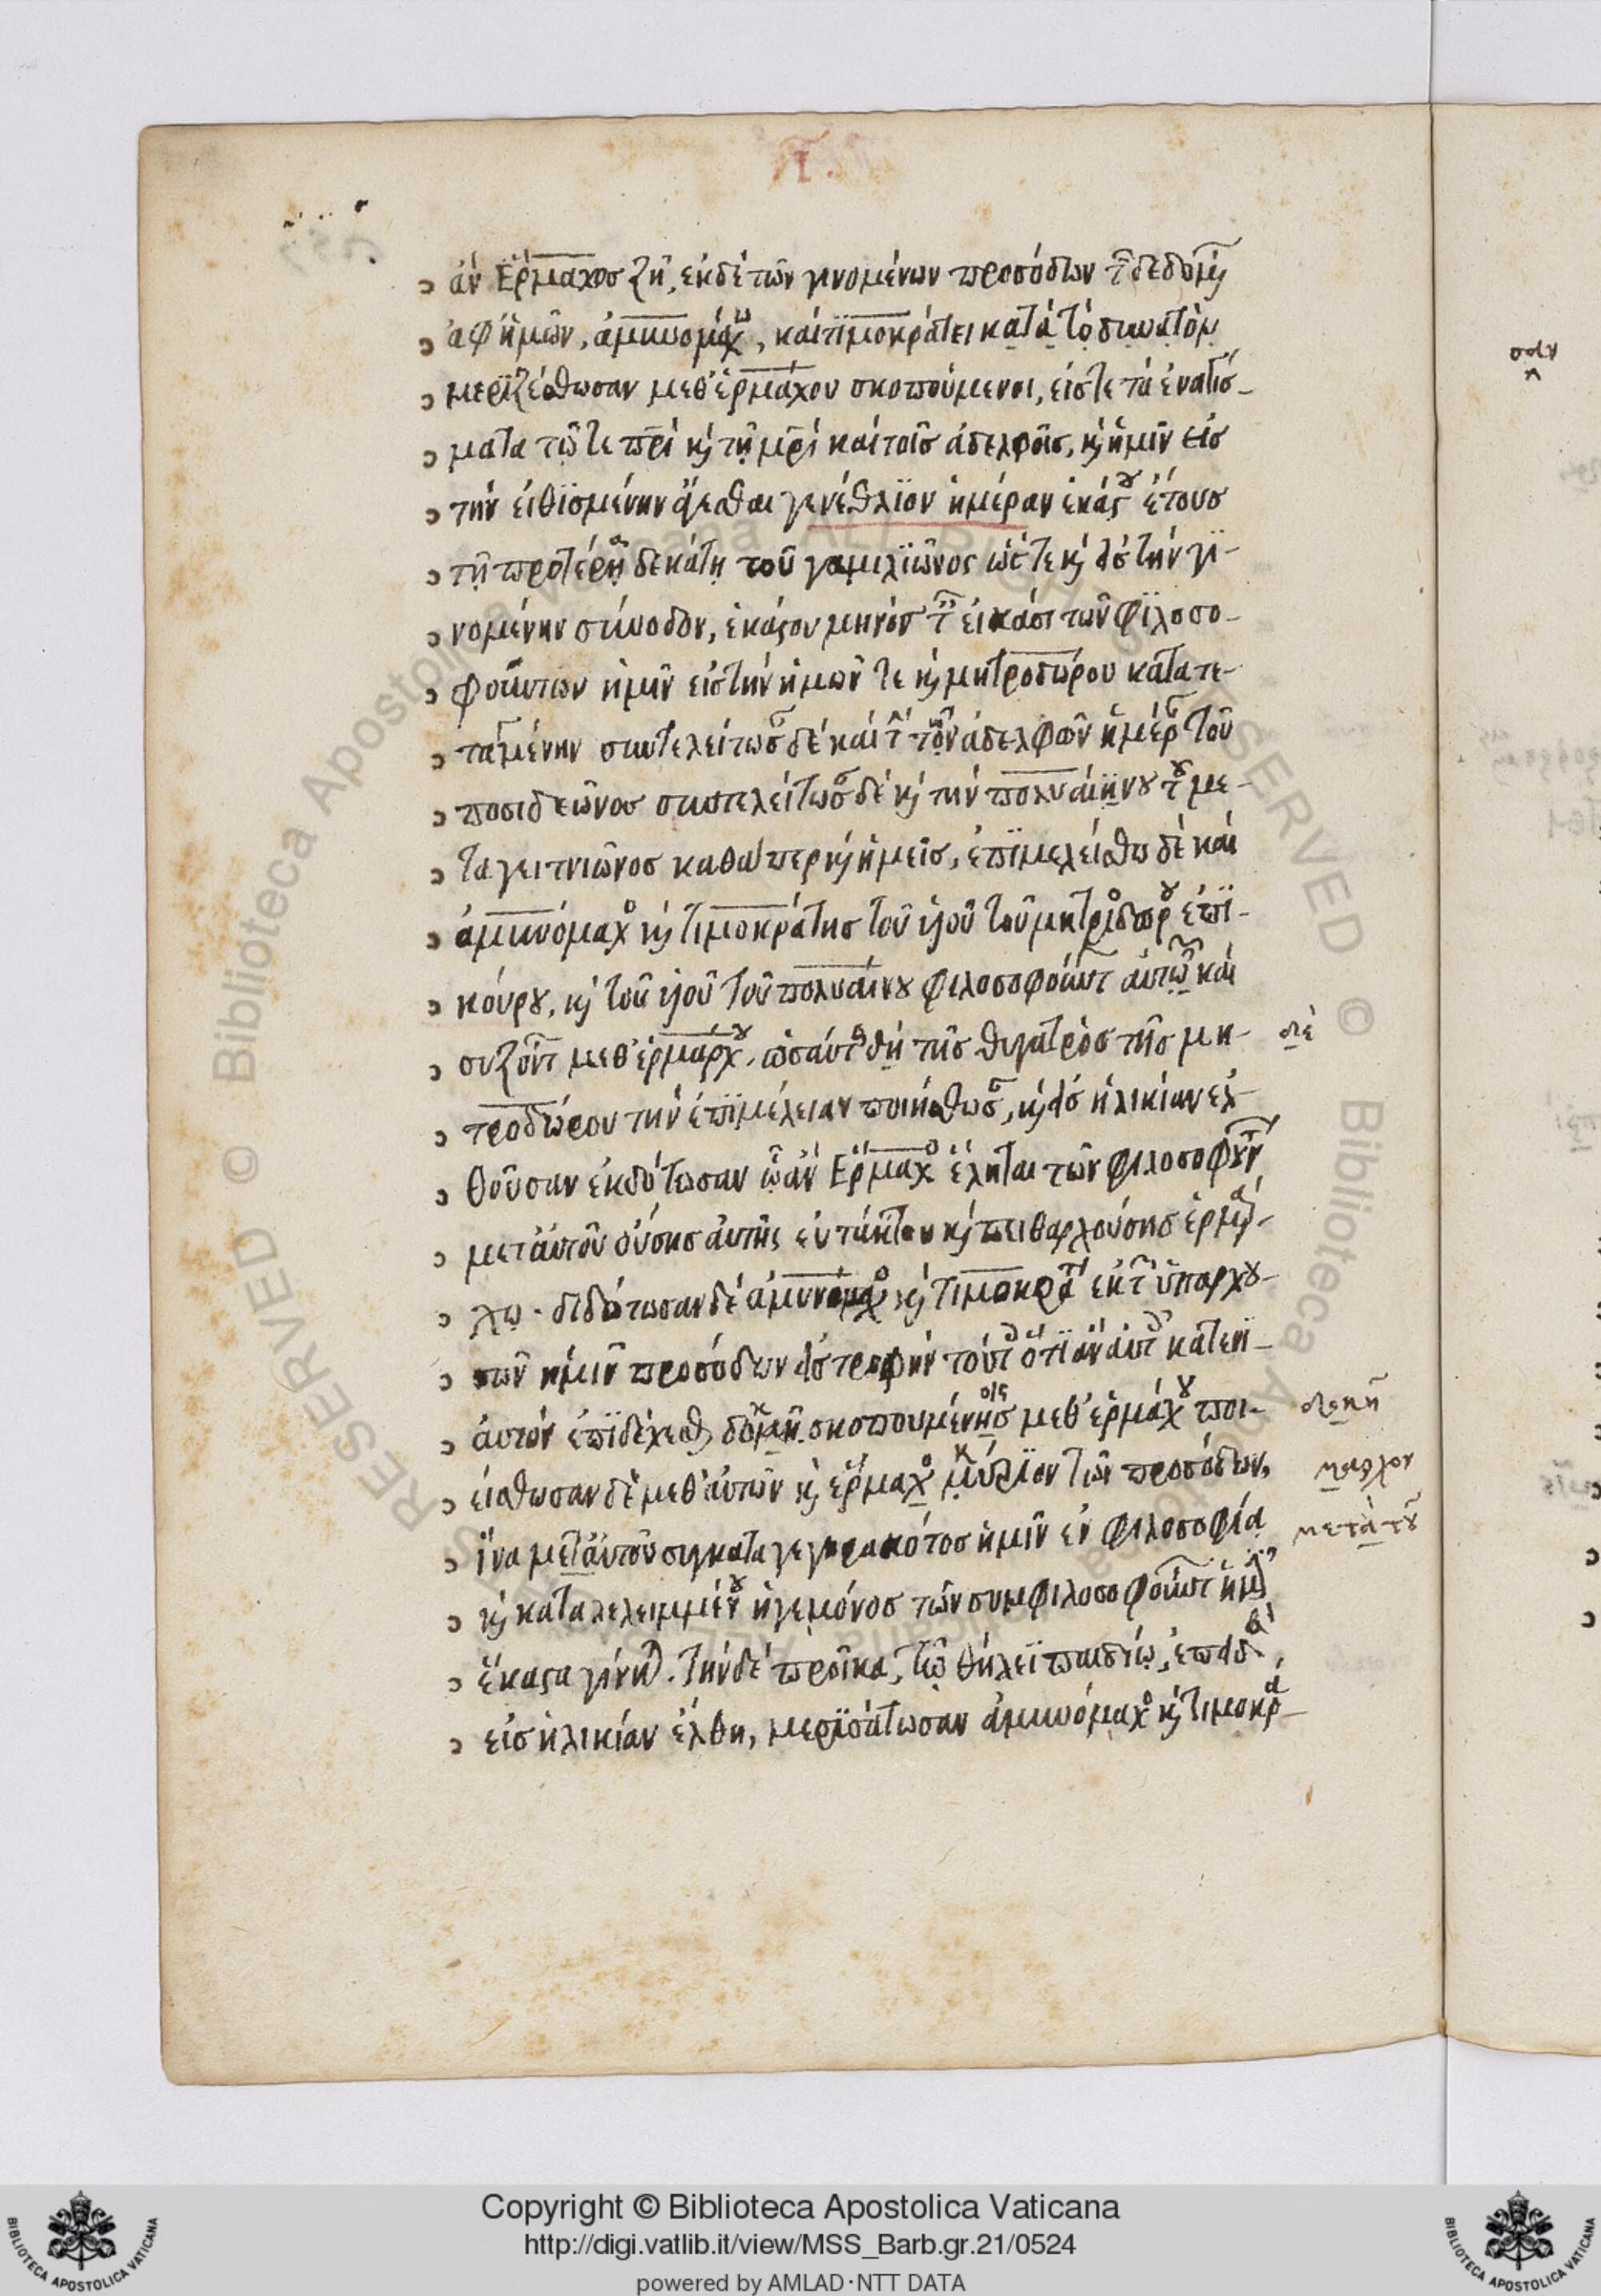 Ι.
ἀν Ἑρμαχοσ ζῆ, ἐκδὲ τῶν γινομένων προσόδων τ̑ δεδομέ
ἀφ ἡμῶν, ἀμυνομάχω, καὶ τϊμοκράτει κατὰ τὸ δυνατὸν
μερϊζέσθωσαν μεθ' ἑρμάχου σκοπούμενοι, εἴστε τὰ ἐναγίσ-
ματα τῶ τε πρὶ κὶ τῆ μρὶ καὶ τοῖσ ἀδελφοῖσ, κὶ ἡμῖν εἰσ
τὴν εἰθϊσμένην ἄγεσθαι γενέθλϊον ἡμέραν ἑκάστου ἔτουσ
τῆ προτέρα δεκάτη τοῦ γαμιλϊῶνος ὡς τε κὶ εἰσ τὴν γϊ-
νομένην σύνοδον, ἑκάστου μηνὸσ τ̑ εἰκάσι τῶν φϊλοσο-
φούντων ἡμῖν εἰς τὴν ἡμῶν τε κὶ μητροδώρου κατατε-
ταγμένην συντελείτωσ δὲ καὶ τ̑ τῶν ἀδελφῶν ἡμέρ τοῦ
ποσιδεῶνοσ συντελείτωσ δὲ κὶ τὴν πολυαίνου τοῦ με-
ταγειτνιῶνοσ καθάπερ κὶ ἡμεῖσ, ἐπϊμελείσθω δὲ καὶ
ἀμυνόμαχο κὶ τιμοκράτησ τοῦ ὑοῦ τοῦ μητροδώρου ἐπϊ-
κούρου, κὶ τοῦ ὑοῦ τοῦ πολυαίνου φιλοσοφούντ αὐτῶ καὶ
συζῶντ μεθ' ἑρμάρχου. ὡσαύτ δὴ τῆσ θυγατρὸσ τῆσ μη-
δὲ
τροδώρου τὴν ἐπϊμέλειαν ποιήσθωσ, κὶ εἰσ ἡλικίαν ἐλ-
θοῦσαν ἐκδότωσαν ὧ ἀν Ἑρμαχο ἕληται τῶν φιλοσοφούντ
μετ αὐτοῦ οὔσησ αὐτῆς εὐτάκτου κὶ πειθαρχούσησ ἑρμά-
χω. διδότωσαν δὲ ἀμυνόμαχο κὶ τιμοκρατ ἐκ τ̑ ὑπαρχου-
σῶν ἡμῖν προσόδων εἰσ τροφὴν τούτ ὅτϊ ἀν αὐτ κατ ενϊ-
αυτὸν ἐπϊδέχεσθ δοκῆ. σκοπουμένησ μεθ' ἑρμάχου ποι-
δοκῆ
είσθωσαν δὲ μεθ αὐτῶν κὶ ἑρμαχο κύρϊον τῶν προσόδων,
ἵνα μετ αὐτοῦ συγκαταγεγηρακότοσ ἡμῖν ἐν φιλοσοφία
μετὰ τοῦ
κὶ καταλελειμμένου ἡγεμόνοσ τῶν συμφιλοσοφούντ ἡμῖ
ἕκαστα γίνητ. τὴν δὲ προῖκα, τῶ θήλεϊ παιδίω, ἐπειδὰ,
εἰσ ἡλικίαν ἔλθη, μερϊσάτωσαν ἀμυνόμαχο κὶ τιμοκρά-
Copyright © Biblioteca Apostolica Vaticana
http://digi.vatlib.it/view/MSS_Barb.gr.21/0524
powered by AMLAD·NTT DATA